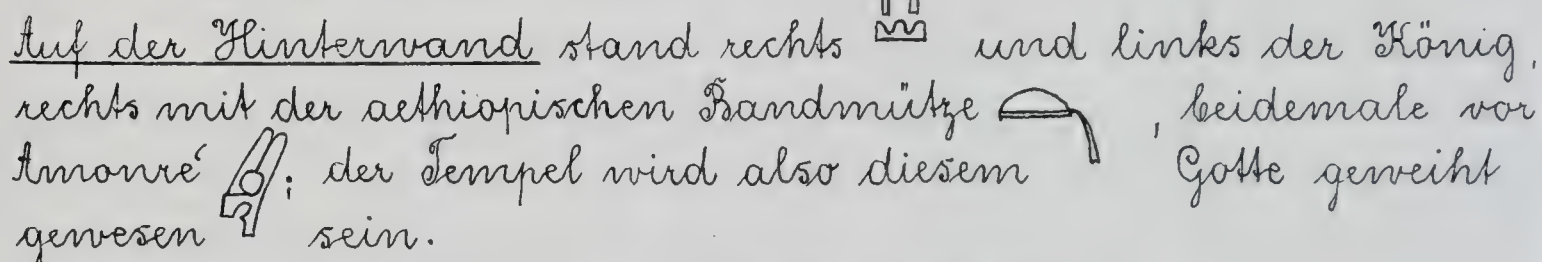 Auf der Hinterwand stand rechts und links der König,
rechts mit der aethiopischen Bandmütze, beidemale vor
Amonré; der Tempel wird also diesem Gotte geweiht
gewesen sein.